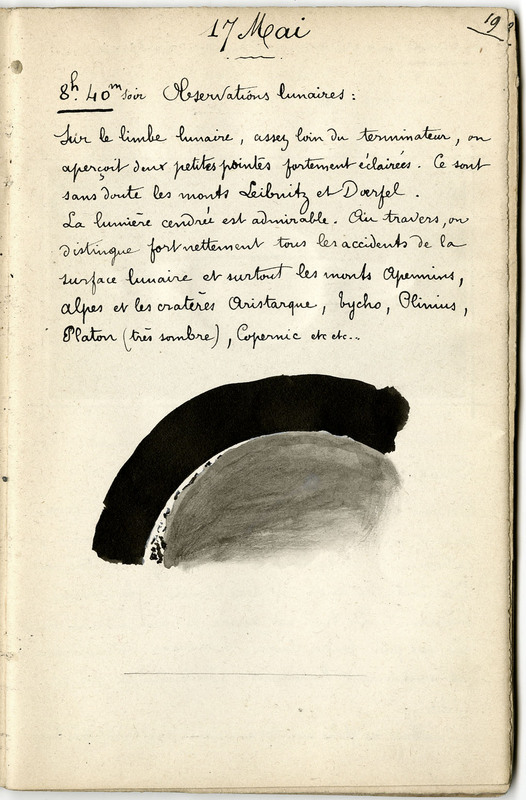 17 Mai
19
8h. 40m soir Observations lunaires :
Sur le limbe lunaire, assez loin du terminateur, on
aperçoit deux petites pointes fortement éclairées. Ce sont
sans doute les monts Leibnitz et Dœrfel.
La lumière cendrée est admirable. Au travers, on
distingue fort nettement tous les accidents de la
surface lunaire et surtout les monts Apennins,
Alpes et les cratères Aristarque, Tycho, Plinius,
Platon (très sombre), Copernic etc etc...